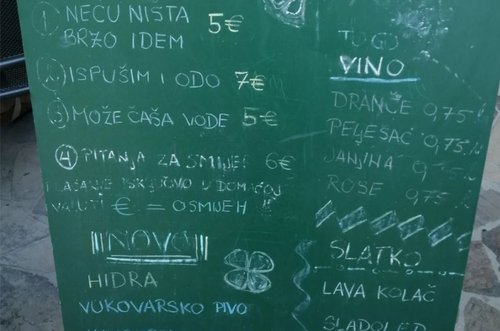 1 NEĆU NIŠTA 5€
BRZO IDEM
2 ISPUŠIM I ODO 7€
3 MOŽE ČAŠA VODE 5€
4 PITANJA ZA SMIJEH 6€
PLAĆANJE ISKLJUČIVO U DOMAĆOJ
VALUTI € = OSMIJEH !!
NOVO
HIDRA
VUKOVARSKO PIVO
TO GO
VINO
DRANČE 0,75 L
PELJEŠAC 0,75 L
JANJINA 0,75 L
ROSE 0,75 L
SLATKO
LAVA KOLAČ
SLADOLED